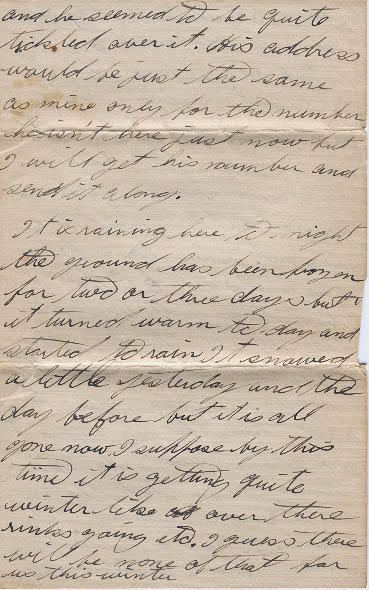 and he seemed to be quite
tickled over it. His address
would be just the same
as mine only for the number
he isn't here just now but
I will get his number and
send it along.
It is raining here to night
the ground has been frozen
for two or three days but
it turned warm to-day and
started to rain It snowed
a little yesterday and the
day before but it is all
gone now. I suppose by this
time it is getting quite
winter like over there
rinks going etc. I guess there
will be none of that for
us this winter